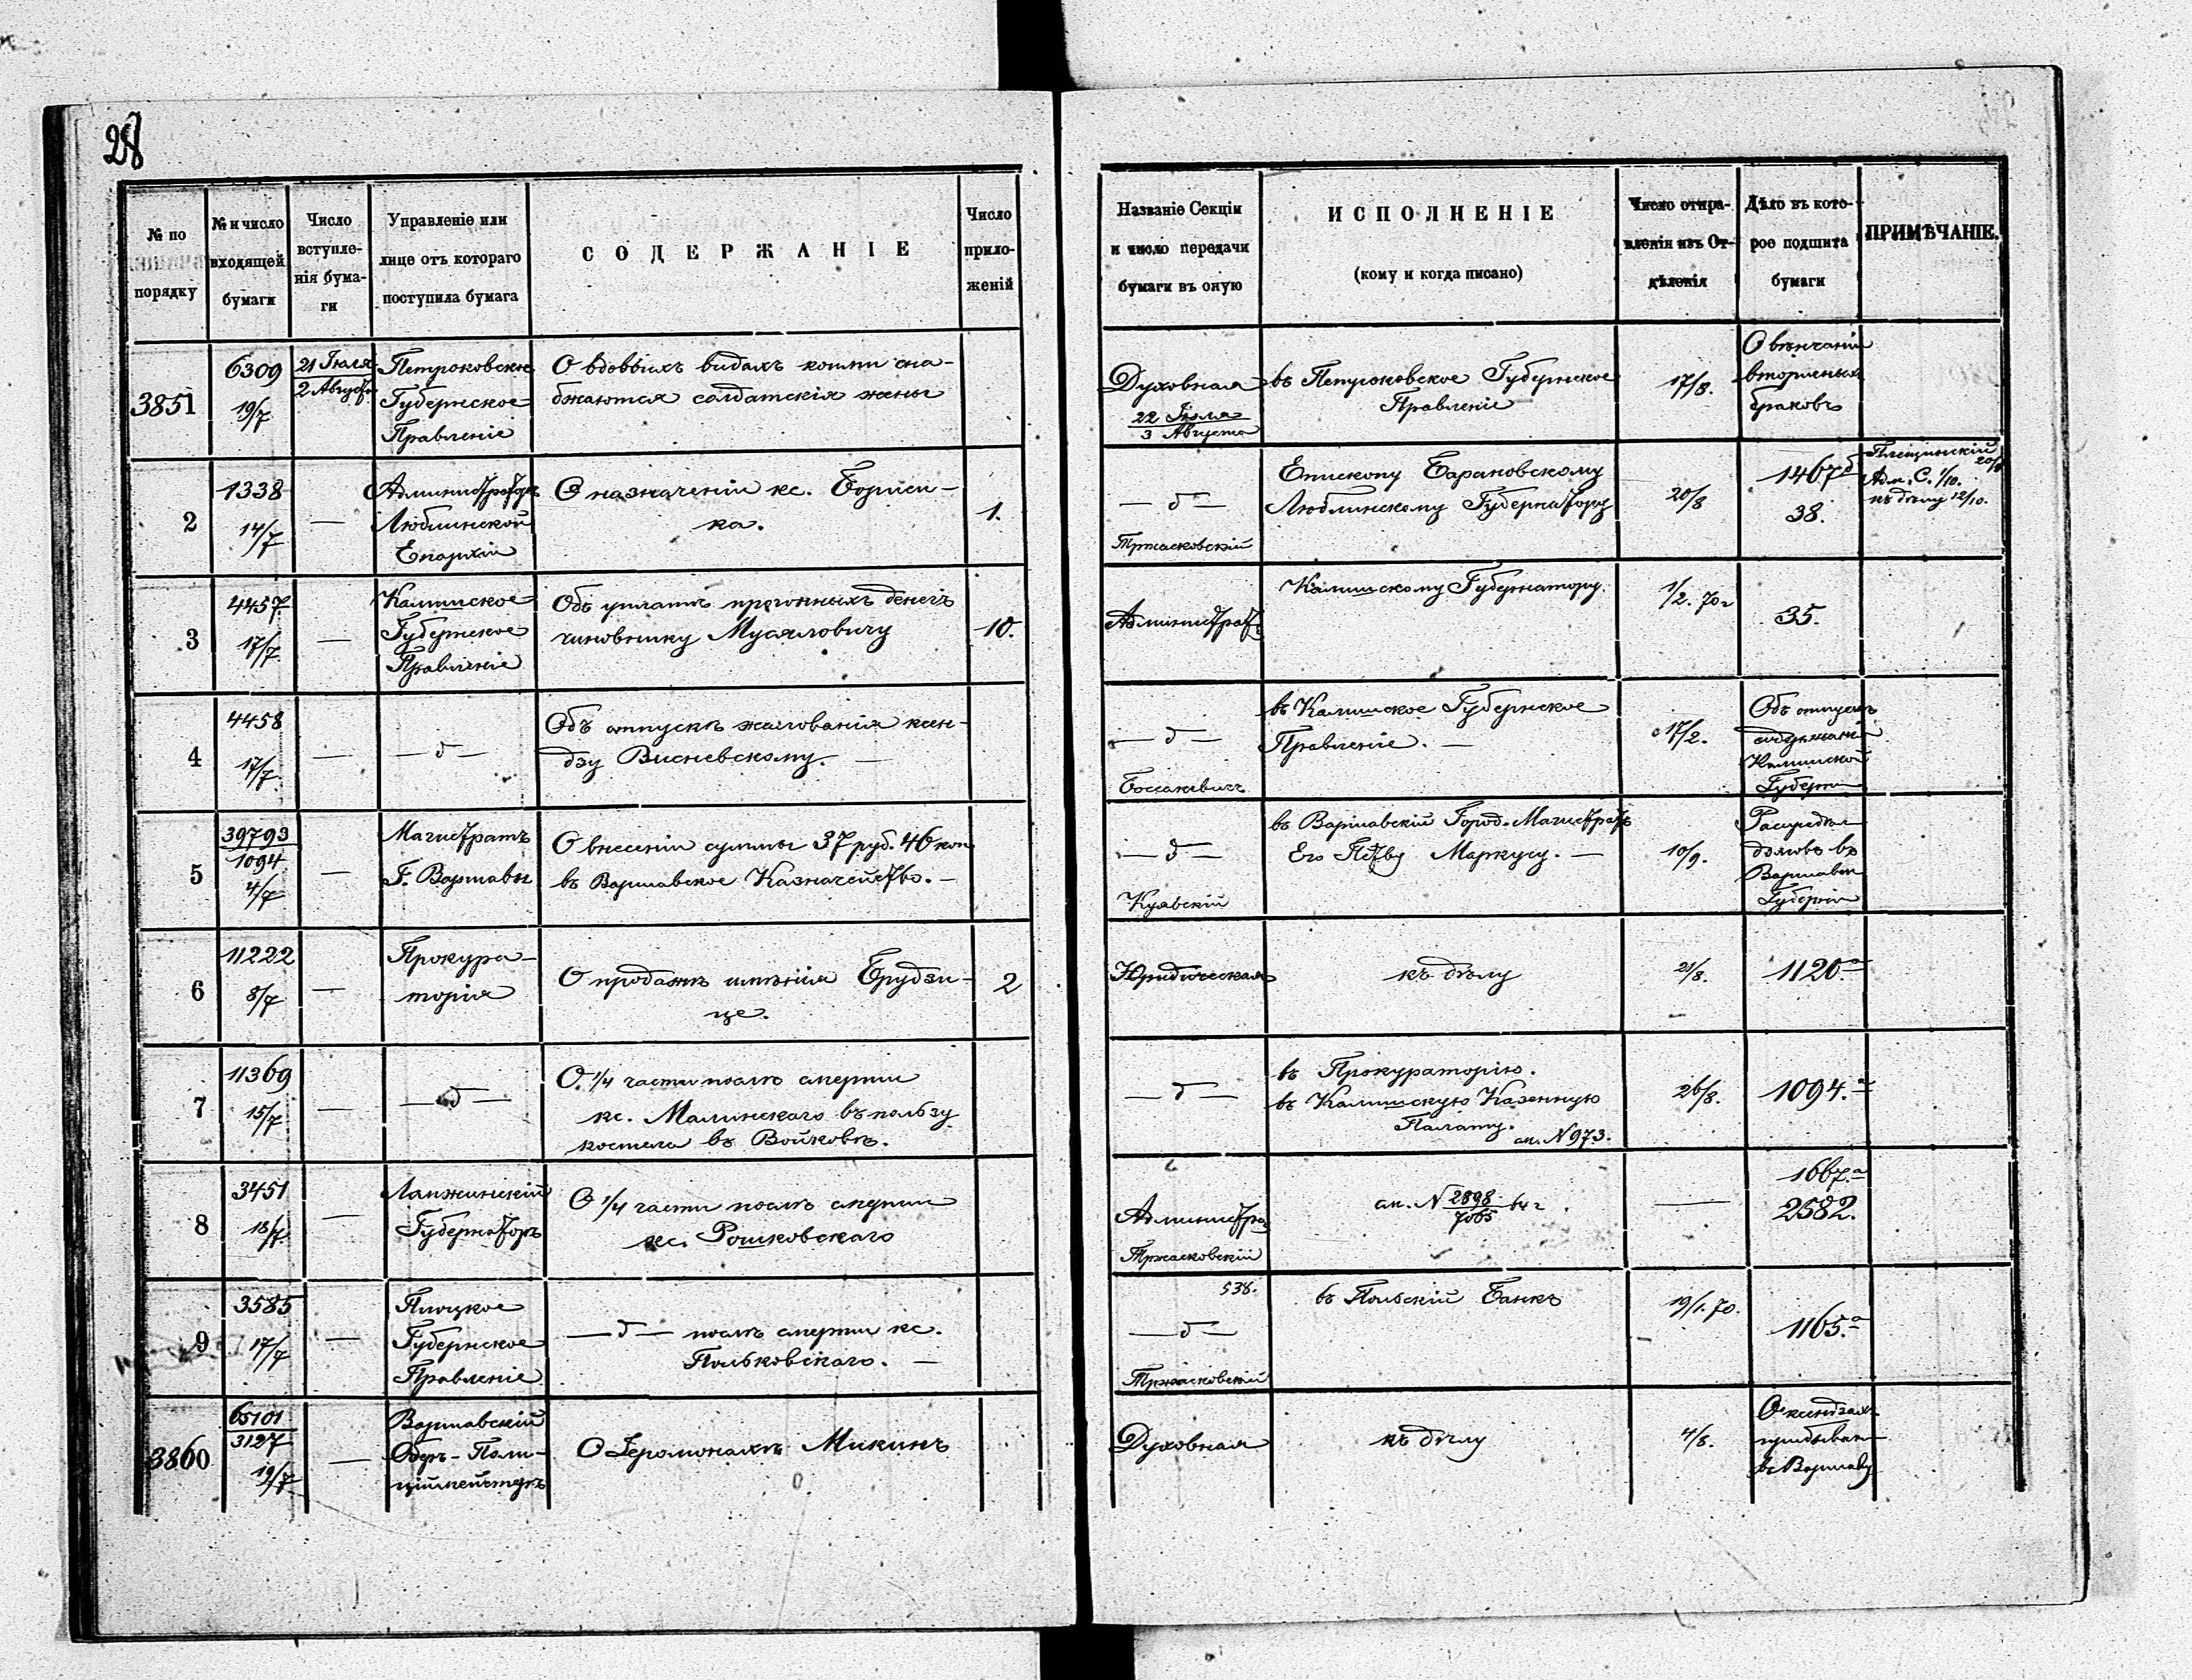 28
№ по порядку
№ и число входящей бумаги
Число вступленія бумаги
Управленіе или лице отъ котораго поступила бумага
СОДЕРЖАНІЕ
Число приложеній
Названіе Секціи и число передачи бумаги въ оную
ИСПОЛНЕНІЕ
(кому и когда писано)
Число отправленія изъ Отдѣленія
Дѣло въ которое подшита бумаги
ПРИМѢЧАНІЕ.
3851
6309
19/7
21 Іюля
2 Августа
Петроковское
Губернское
Правленіе
О вдовьихъ видахъ коими сна-
бжаются солдатскія жены
Духовная
22 Іюля
3 Августа
въ Петроковское Губернское
Правленіе
17/8.
О вѣнчаніи
вторичныхъ
браковъ
2
1338
14/7
—
Администраторъ
Люблинской
Епархіи
О назначеніи кс. Бориси-
ка.
1.
— д —
Тржасковскій
Епископу Барановскому
Люблинскому Губернатору
20/8
1467 б
38.
Адм. С. 1/10.
къ дѣлу 12/10.
3
4457.
17/7.
—
Калишское
Губернское
Правленіе
Объ уплатѣ прогонныхъ денегъ
чиновнику Мусяловичу
10.
Администрат.
Калишскому Губернатору.
1/2. 70 г
35.
4
4458
17/7.
—
— д —
Объ отпускѣ жалованія ксен-
дзу Висневскому. —
— д —
Боссакевичъ
въ Калишское Губернское
Правленіе. —
17/2.
Объ отпускѣ
содержанія
Калишской
Губерніи
5
39793
1094.
4/7
—
Магистратъ
Г. Варшавы
О внесеніи суммы 37 руб. 46 коп
въ Варшавское Казначейство. —
— д —
Куявскій
въ Варшавскій Город. Магистратъ
Маркусу. —
10/9.
въ
Варшавск
Губерніи
6
11222
8/7
—
Прокура-
торія
О продажѣ имѣнія Грудзи-
це.
2
Юридическая
къ дѣлу
21/8.
1120. а
7
11369
15/7.
—
— д —
О 1/4 части послѣ смерти
кс. Малинскаго въ пользу
костела въ Войковѣ.
— д —
въ Прокураторію.
въ Калишскую Казенную
Палату.
см. N 973.
26/8.
1094. а
8
3451
18/7.
—
Ломжинскій
Губернаторъ
О 1/4 части послѣ смерти
кс. Рошковскаго
Администра
Тржасковскій
см. N 2898/7065 64 г.
—
1667. а
2582.
9
3585
17/7
—
Плоцкое
Губернское
Правленіе
— д — послѣ смерти кс.
Польковскаго. —
538.
— д —
Тржасковскій
въ Польскій Банкъ
19/1. 70.
1165. а
3860
65101
3127
19/7
—
Варшавскій
Оберъ-Поли-
ціймейстеръ
О Іеромонахѣ Микинъ
Духовная
къ дѣлу
4/8.
О ксендзахъ
прибывш
въ Варшаву